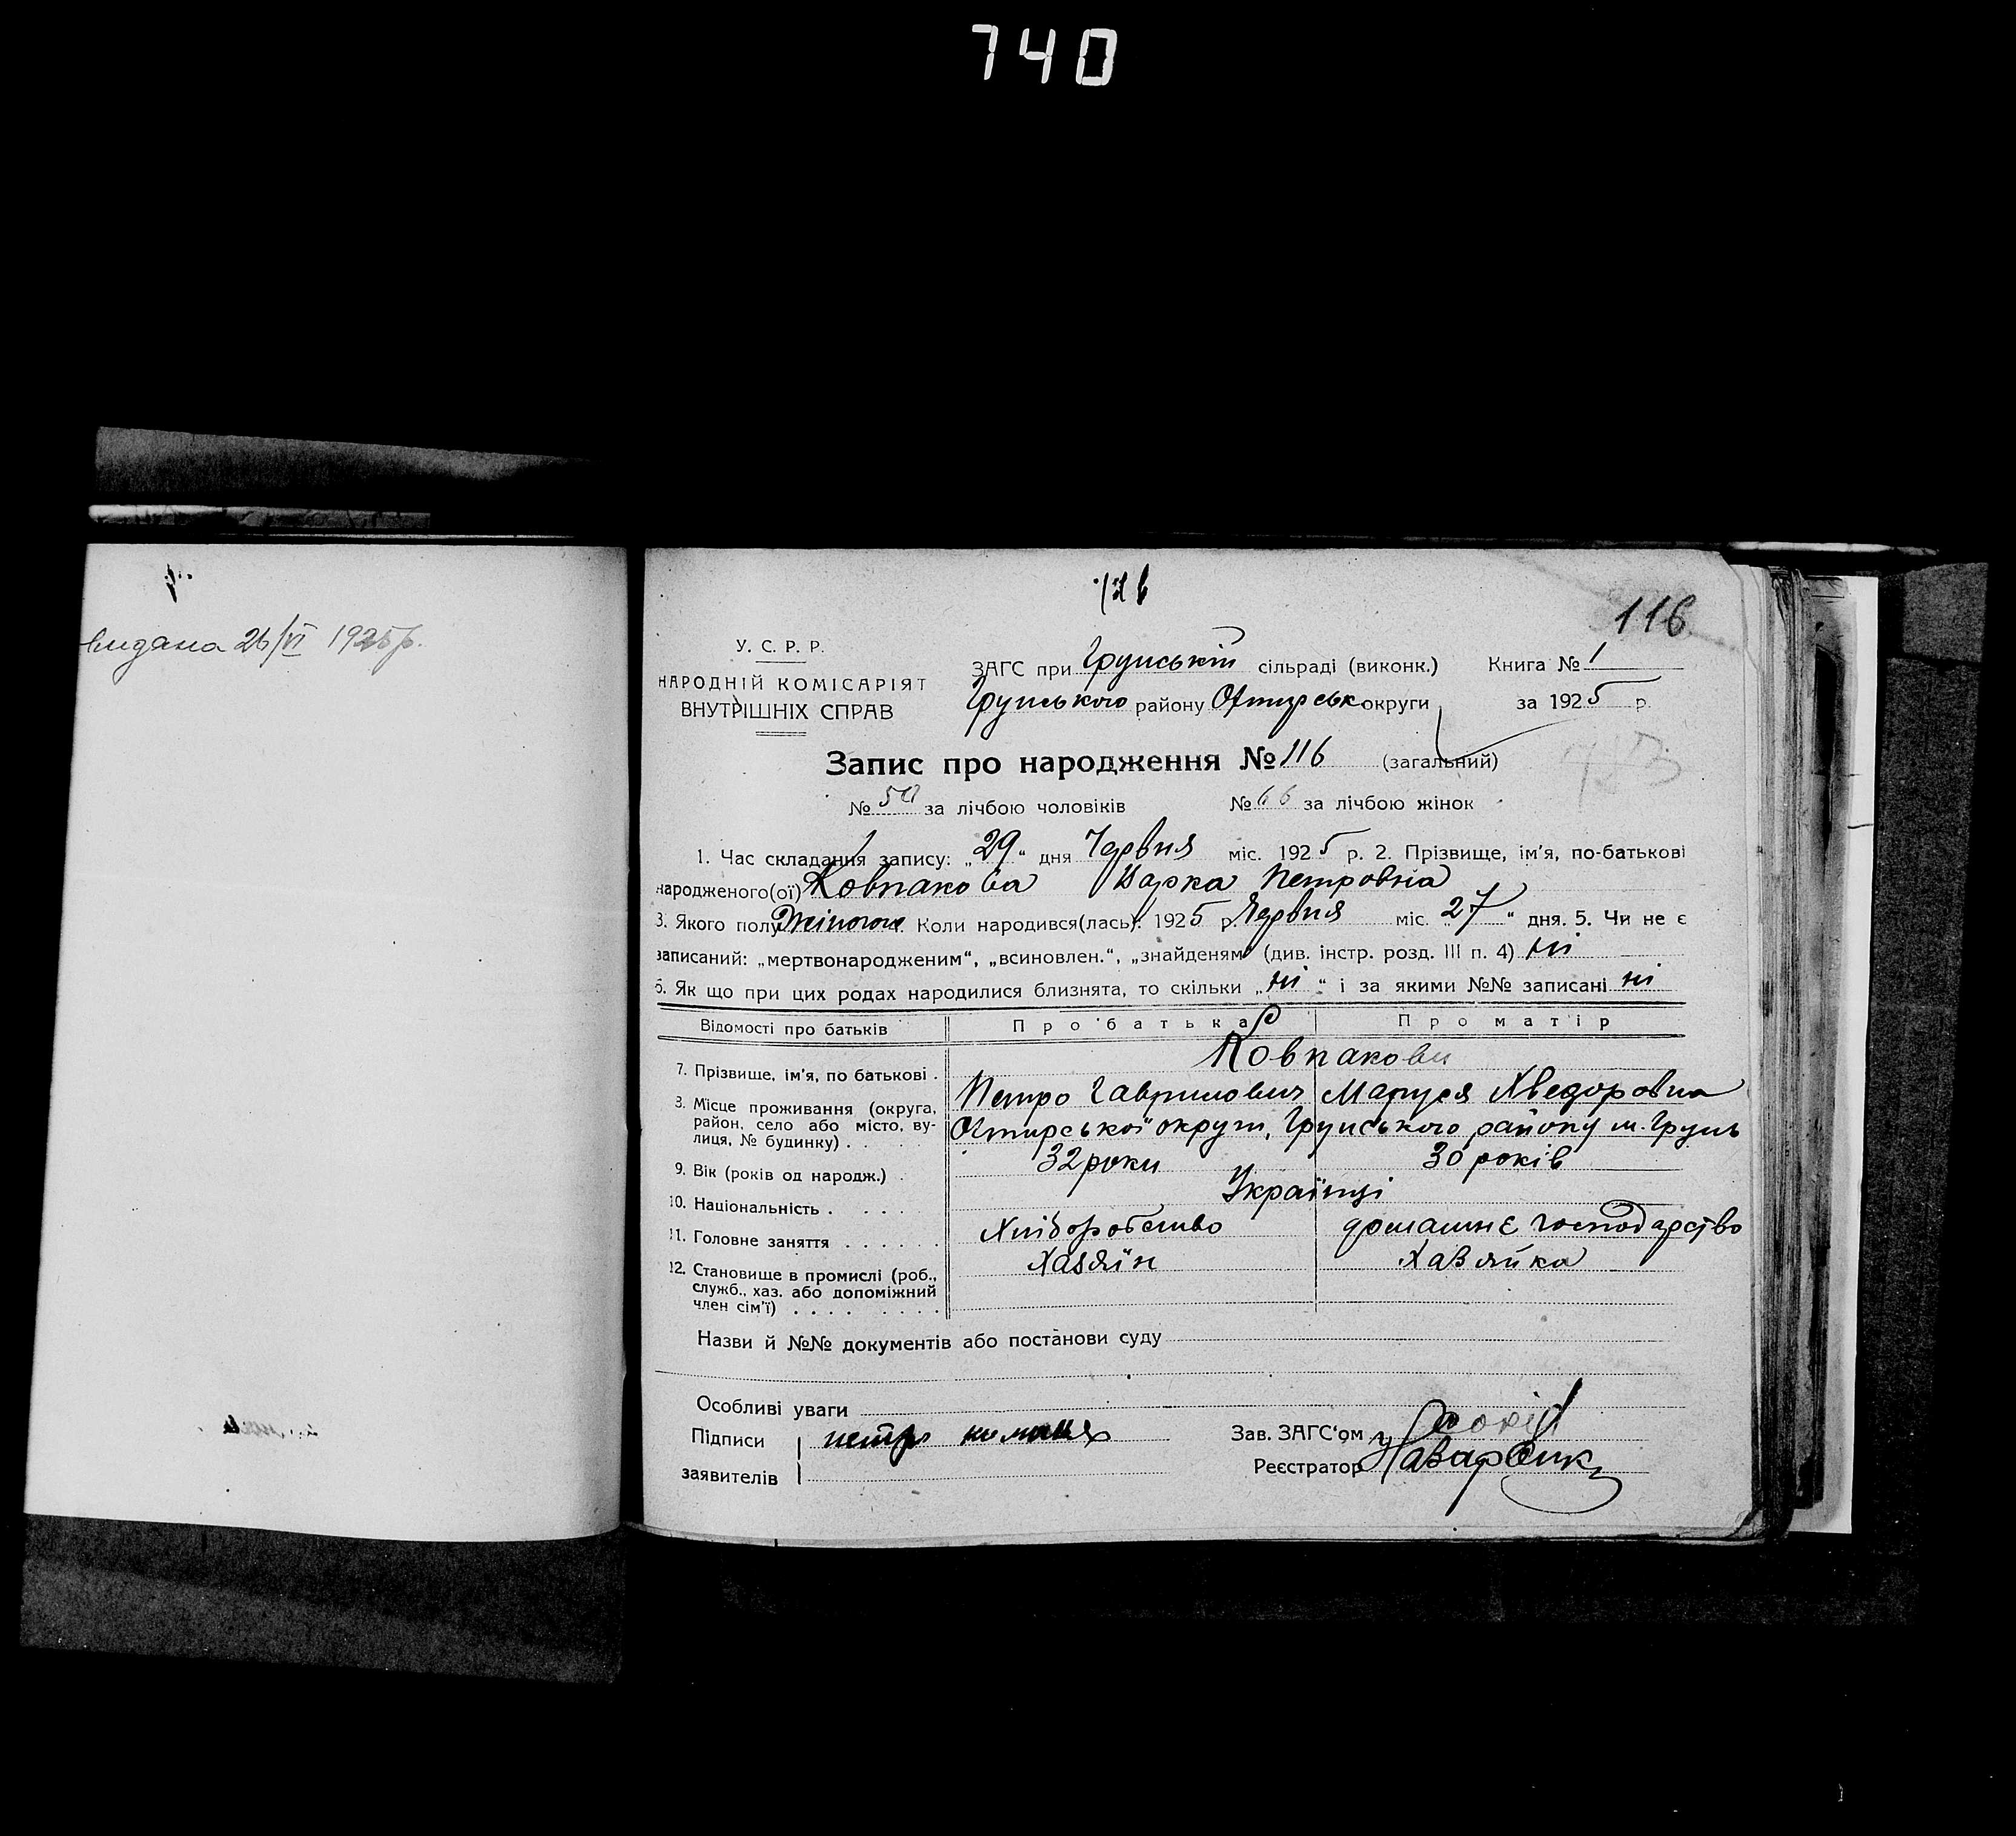 740
видана 26/VI 1925р.
116
У. С. Р. Р.
НАРОДНІЙ КОМІСАРІЯТ
ВНУТРІШНІХ СПРАВ
ЗАГС при Грунській сільраді (виконк.) Книга № 1
Грунського району Охтирськ округи за 1925 р.
Запис про народження № 116 (загальний)
№ 50 за лічбою чоловіків № 66 за лічбою жінок
1. Час складання запису: „29“ дня Червня міс. 1925 р. 2. Прізвище, ім'я, по-батькові
народженого(ої) Ковпакова Варка Петровна
3. Якого полу Жіночої Коли народився(лась): 1925 р. Червня міс. „27“ дня. 5. Чи не є
записаний: „мертвонародженим“, „всиновлен.“, „знайденям“ (див. інстр. розд. III п. 4) ні
6. Як що при цих родах народилися близнята, то скільки „ні“ і за якими №№ записані ні
Відомості про батьків Про батька Про матір
Ковпакови
7. Прізвище, ім'я, по батькові . Петро Гаврилович Маруся Хведоровна
8. Місце проживання (округа,
район, село або місто, ву-
лиця, № будинку) . . . . Охтирської округи, Грунського району м. Грунь
9. Вік (років од народж.) . 32 роки 30 років
10. Національність . . . . Українці
11. Головне заняття . . . . . . Хліборобство домашнє господарство
12. Становище в промислі (роб.,
служб., хаз. або допоміжний
член сім'ї) . . . . . . . . Хазяїн Хазяйка
Назви й №№ документів або постанови суду
Особливі уваги
Підписи петро
заявителів
Зав. ЗАГС'ом
Реєстратор